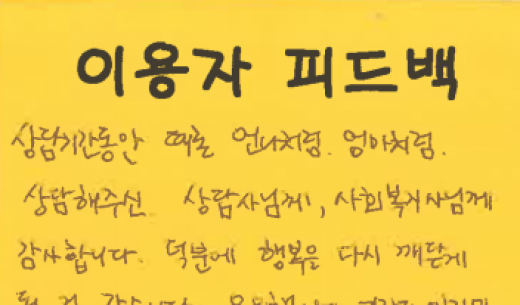 이용자 피드백
상담기간동안 때론 언니처럼. 엄마처럼.
상담해주신 상담사님께, 사회복지사님께
감사합니다. 덕분에 행복을 다시 깨닫게
된 것 같습니다.